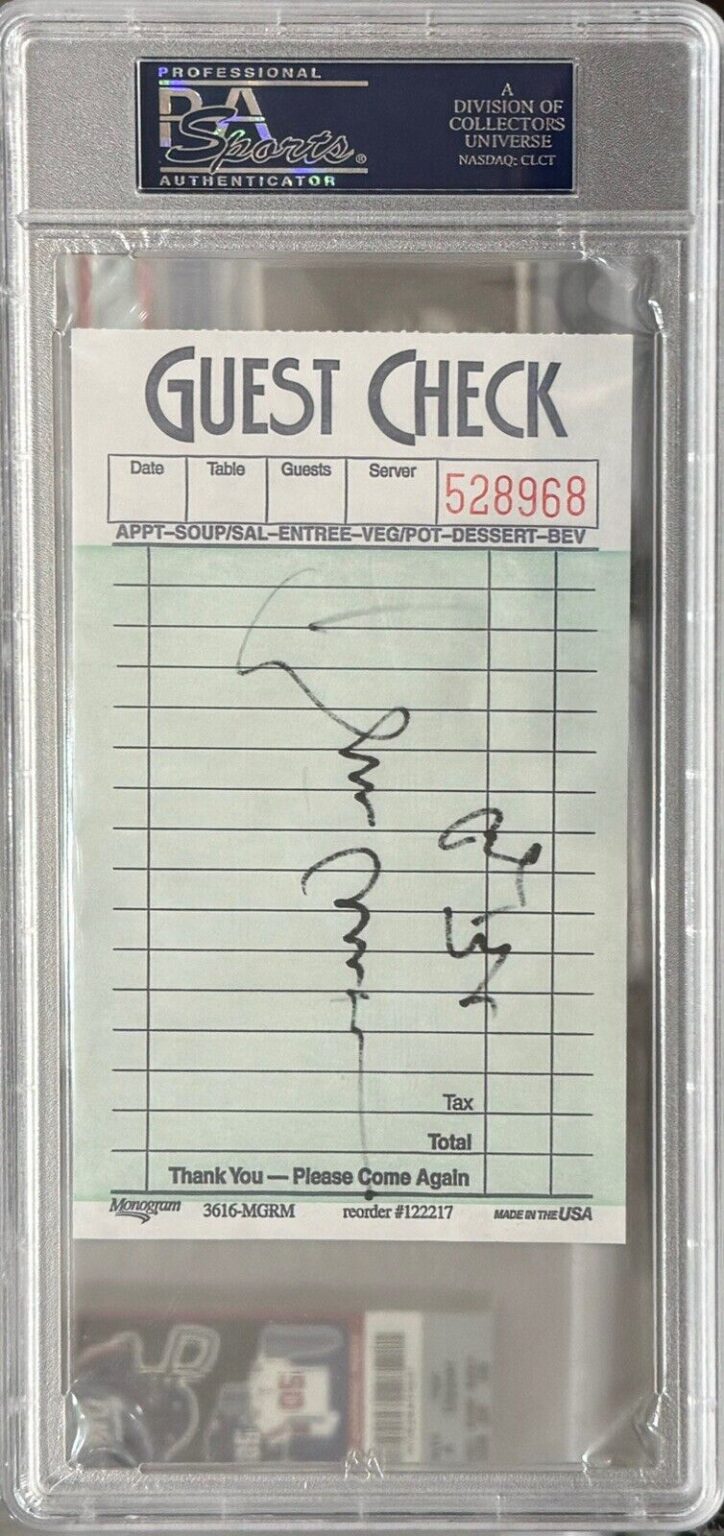 PROFESSIONAL
PSA
Sports®
AUTHENTICATOR
A
DIVISION OF
COLLECTORS
UNIVERSE
NASDAQ: CLCT
GUEST CHECK
Date Table Guests Server 528968
APPT–SOUP/SAL–ENTREE–VEG/POT–DESSERT–BEV
Tax
Total
Thank You — Please Come Again
Monogram 3616-MGRM reorder #122217 MADE IN THE USA